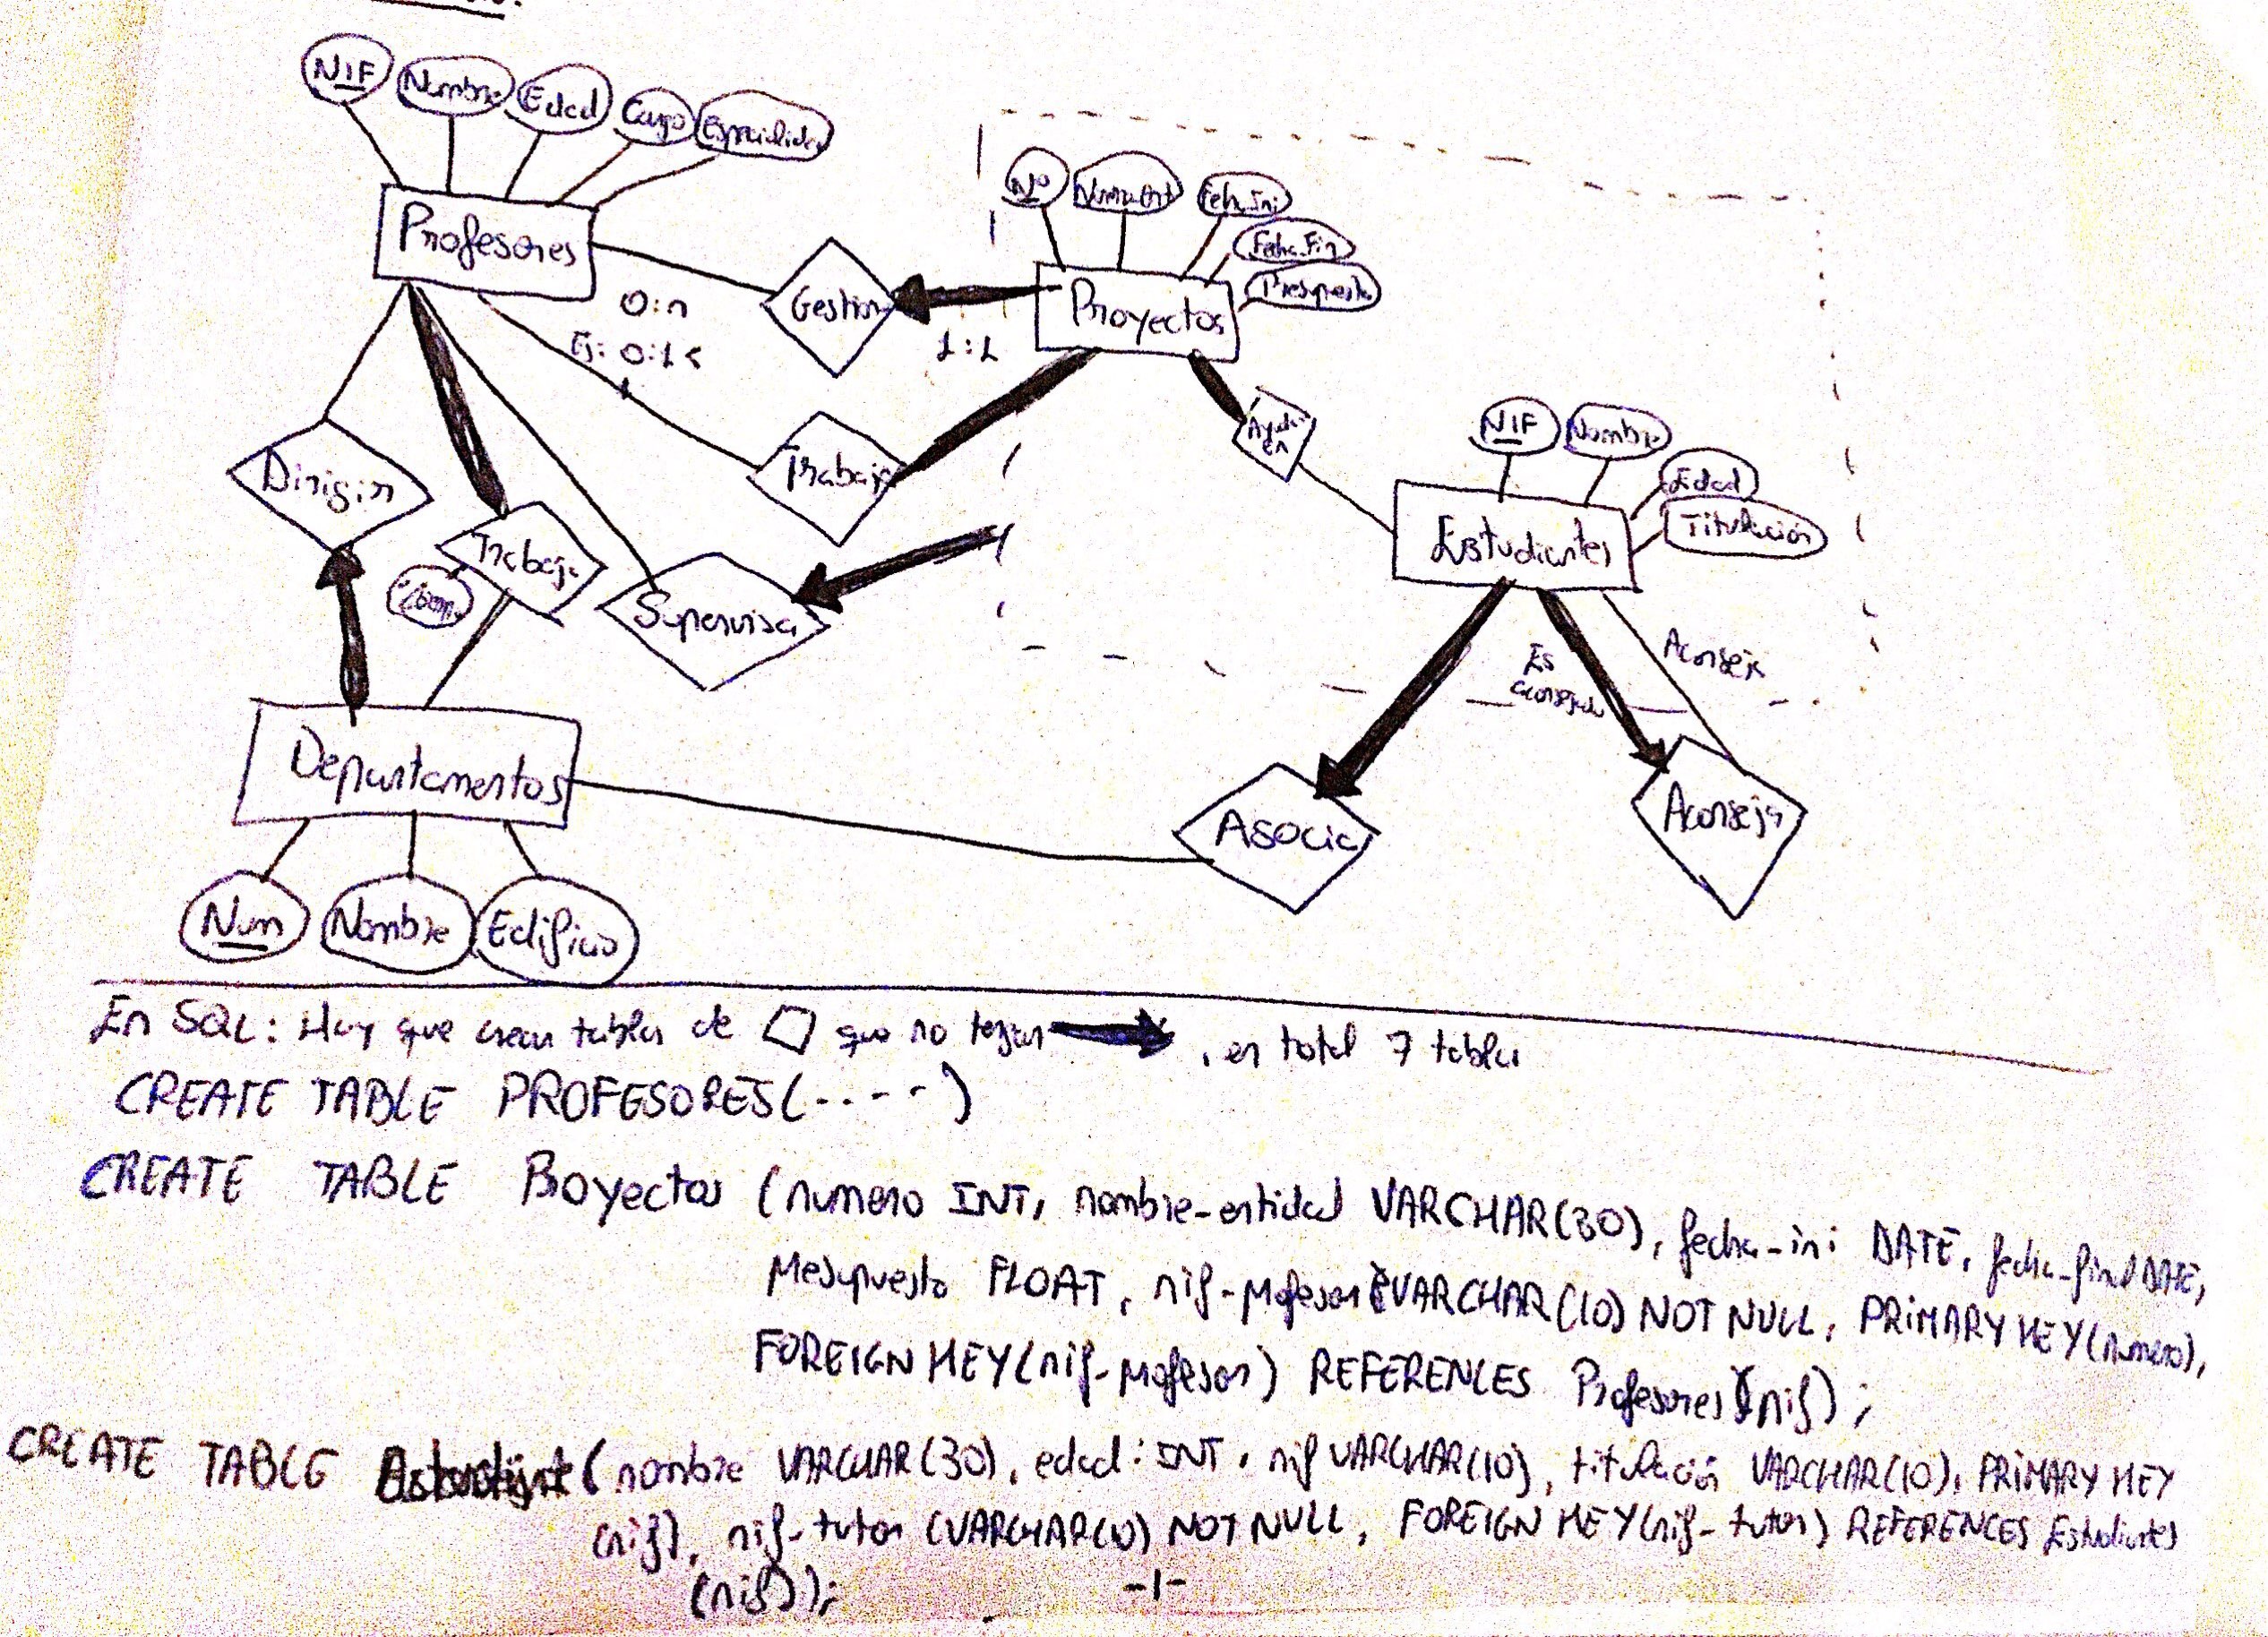 NIF Nombre Edad Cargo Especialidad
Nº Nombre Ent Fech_Ini
Fecha_Fin
Presupuesto
Profesores
Gestion
Proyectos
0:n
Ej: 0:1
1:1
NIF Nombre
Edad
Titulación
Dirigir
Trabaja
Ayuda en
Estudiantes
Trabaja
Supervisa
Es aconsejado
Aconseja
Departamentos
Asocia
Aconseja
Num Nombre Edificio
En SQL: Hay que crear tablas de que no tengan , en total 7 tablas
CREATE TABLE PROFESORES(----)
CREATE TABLE Proyectos (numero INT, nombre-entidad VARCHAR(30), fecha-ini DATE, fecha-final DATE,
presupuesto FLOAT, nif-profesor VARCHAR(10) NOT NULL, PRIMARY KEY(numero),
FOREIGN KEY(nif-profesor) REFERENCES Profesores(nif);
CREATE TABLE (nombre VARCHAR(30), edad: INT, nif VARCHAR(10), titulación VARCHAR(10), PRIMARY KEY
(nif), nif-tutor (VARCHAR(10) NOT NULL, FOREIGN KEY(nif-tutor) REFERENCES Estudiantes
(nif));
-1-